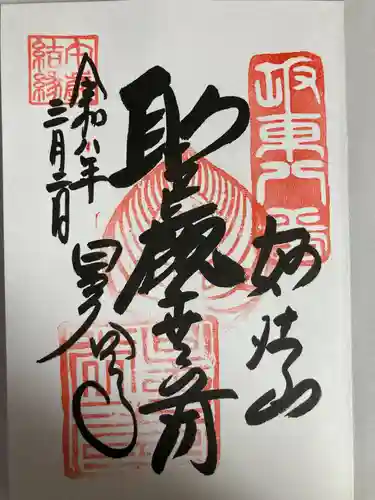 坂東八番
妙法山
聖観世音
午歳
結縁
令和八年
三月六日
星谷寺